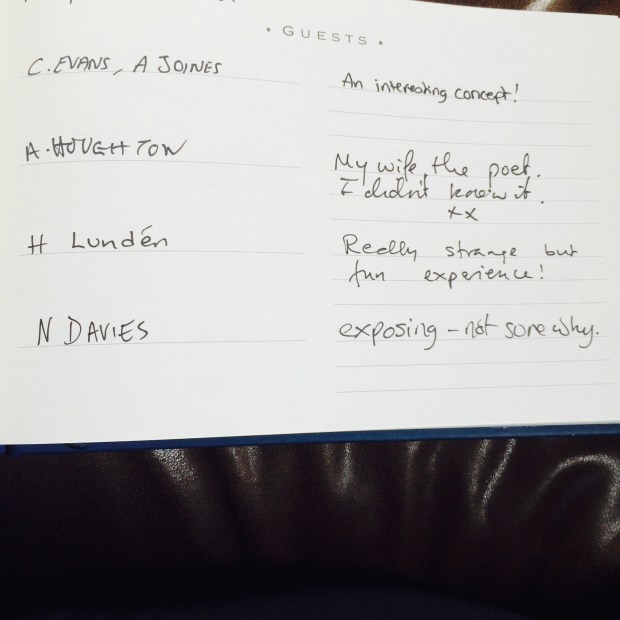 • GUESTS •
C. EVANS, A JOINES
An interesting concept!
A. HOUGHTON
My wife, the poet.
I didn't know it.
xx
H Lundén
Really strange but
fun experience!
N DAVIES
exposing - not sure why.